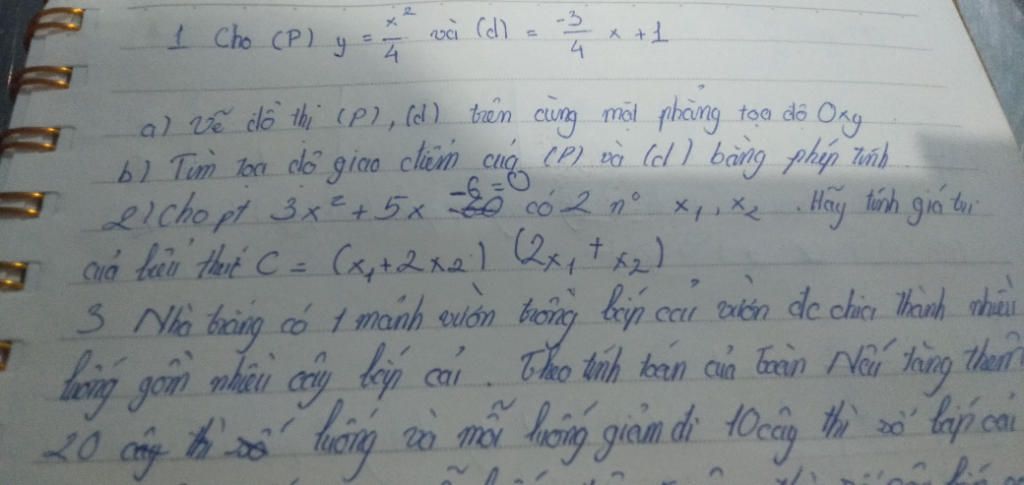 1 Cho (P) y = x²/4 và (d) = -3/4 x + 1
a) Vẽ đồ thị (P), (d) trên cùng mặt phẳng tọa độ Oxy
b) Tìm tọa độ giao điểm của (P) và (d) bằng phép tính
2) Cho pt 3x² + 5x -6 = 0 có 2 n° x₁, x₂ . Hãy tính giá trị
của biểu thức C = (x₁ + 2x₂) (2x₁ + x₂)
3 Nhà trảng có 1 mảnh vườn trồng bắp cải vườn đc chia thành nhiều
luống gồm nhiều cây bắp cải. Theo tính toán của Toàn Nếu tăng thêm
20 luống và mỗi luống giảm đi 10 cây thì số bắp cải